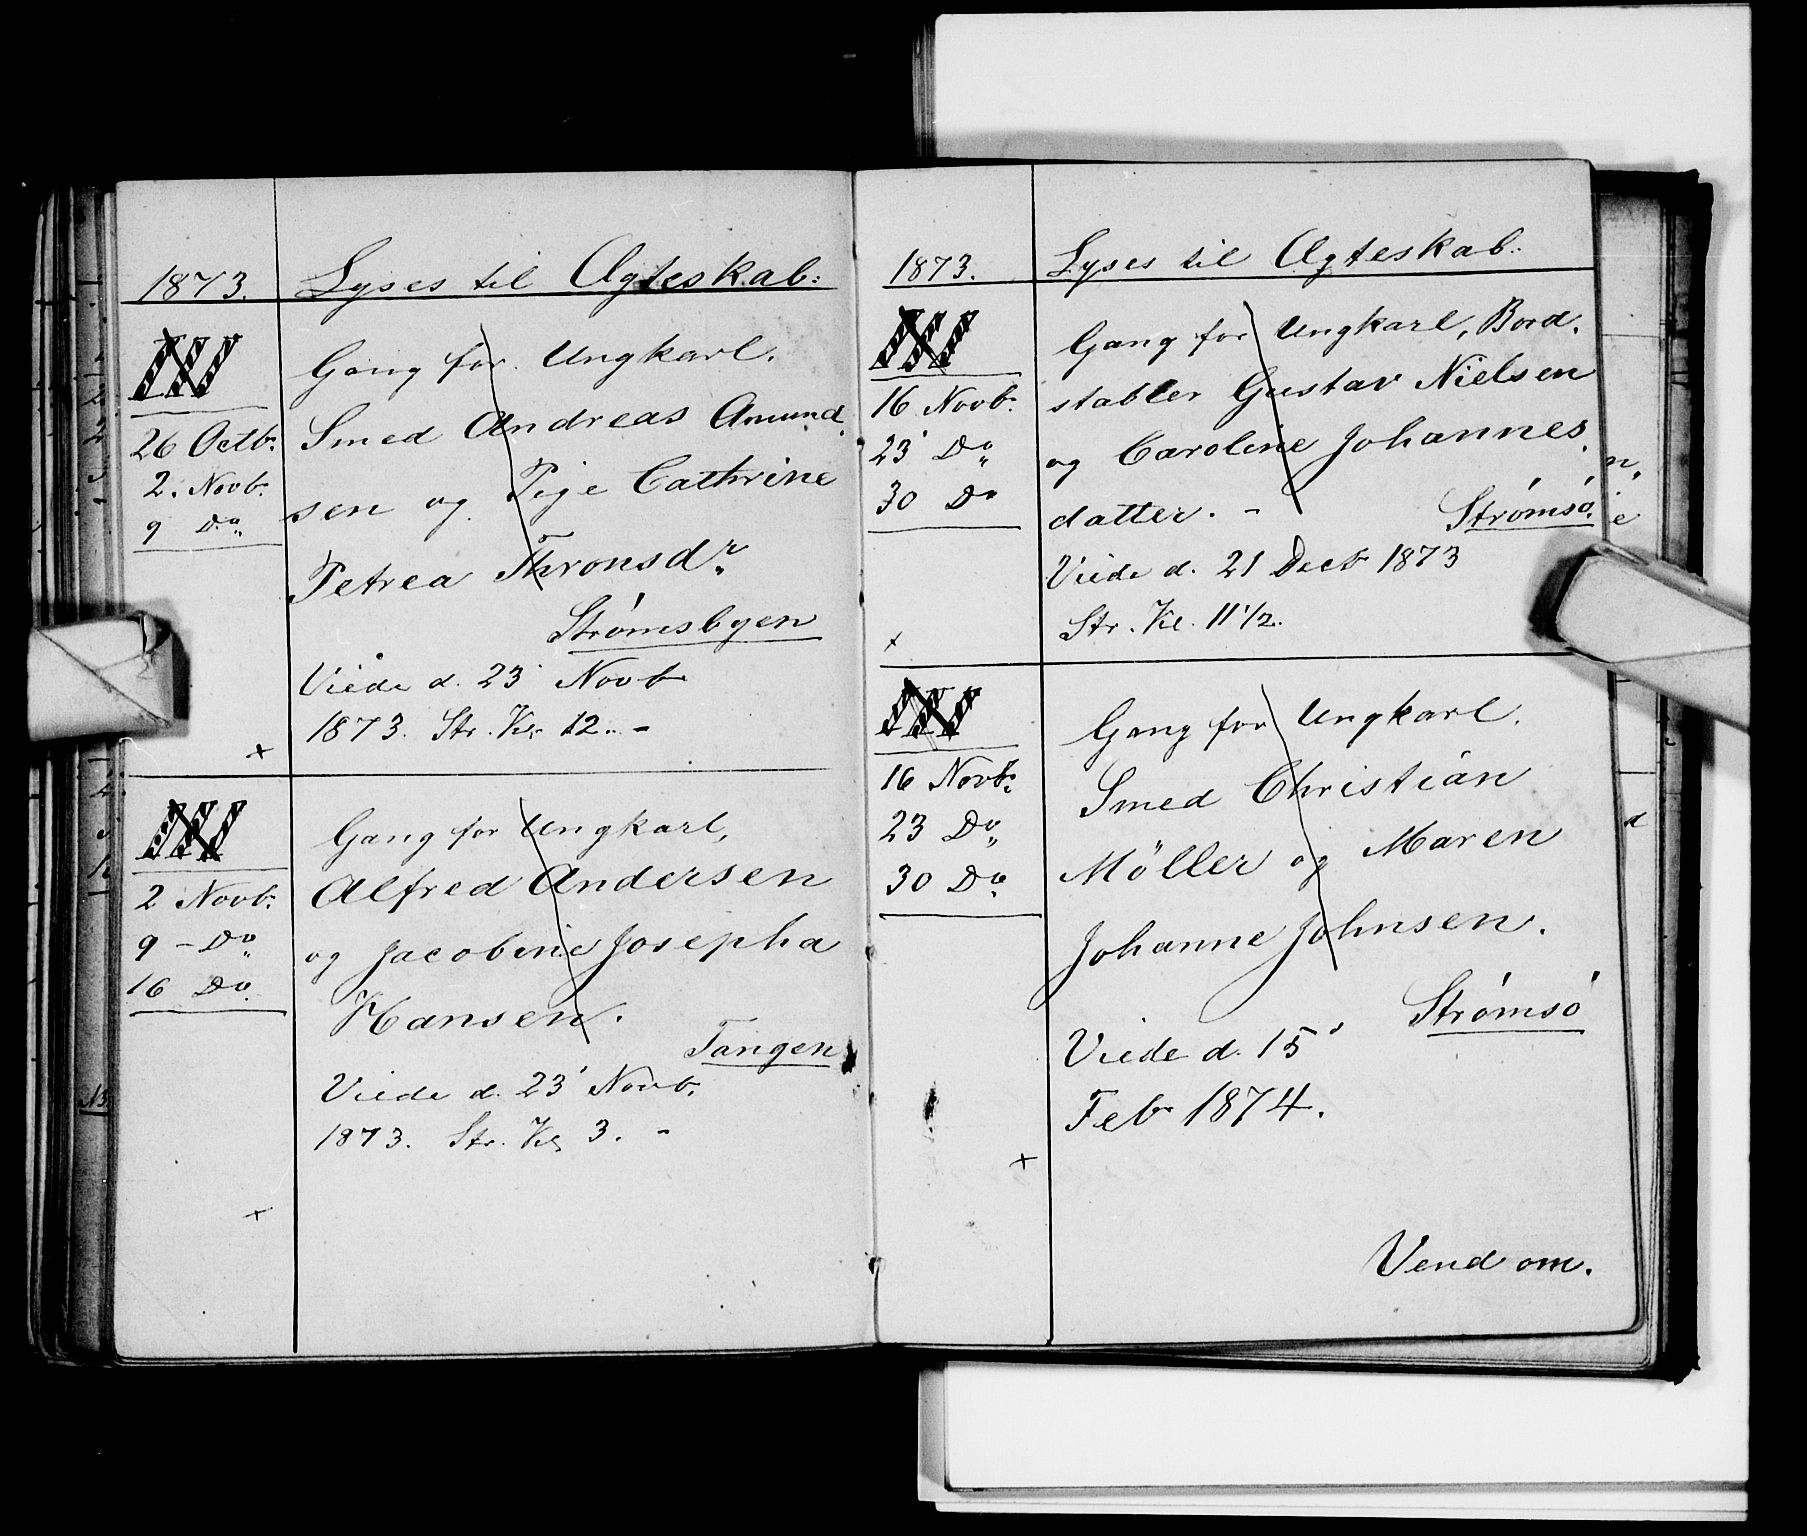 1873. Lyses til Ægteskab:
Gang for Ungkarl.
26 Octbr. Smed Andreas Amund
2. Novb. sen og Pige Cathrine
9 Do.
Petrea Thronsdr.
Strømsbyen
Viede d. 23' Novb
1873. Str. Kl. 12. -
+
Gang for Ungkarl,
2 Novb. Alfred Andersen
9 - Do og Jacobine Josepha
16 Do. Hansen.
Tangen
Viede d. 23' Novb.
1873. Str. Kl. 3. -
+
1873. Lyses til Ægteskab:
Gang for Ungkarl, Bord.
16 Novb. stabler Gustav Nielsen
23' Do og Caroline Johannes.
30 Do datter. -
Strømsø.
Viede d. 21 Decb 1873
Str. Kl. 11 1/2.
+
Gang for Ungkarl.
16 Novb. Smed Christian
23 Do Möller og Maren
30 Do
Johanne Johnsen.
Strømsø
Viede d. 15'
Feb 1874.
+
Vend om.